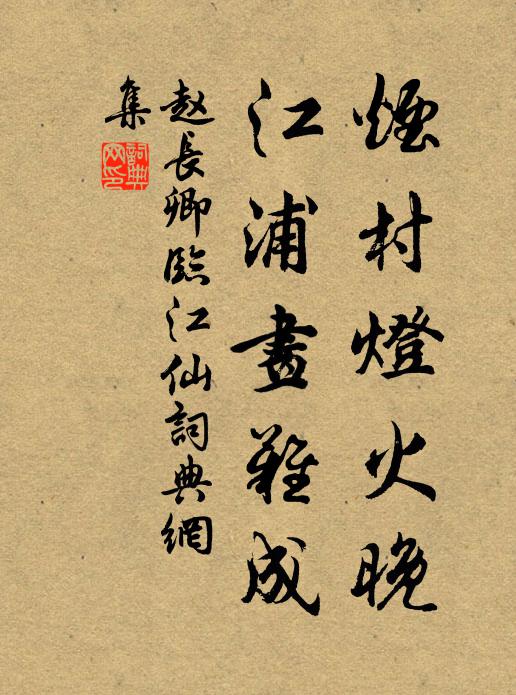 煙村燈火晚
江浦畫難成
赵長卿臨江仙詞典網
集
詞典網印